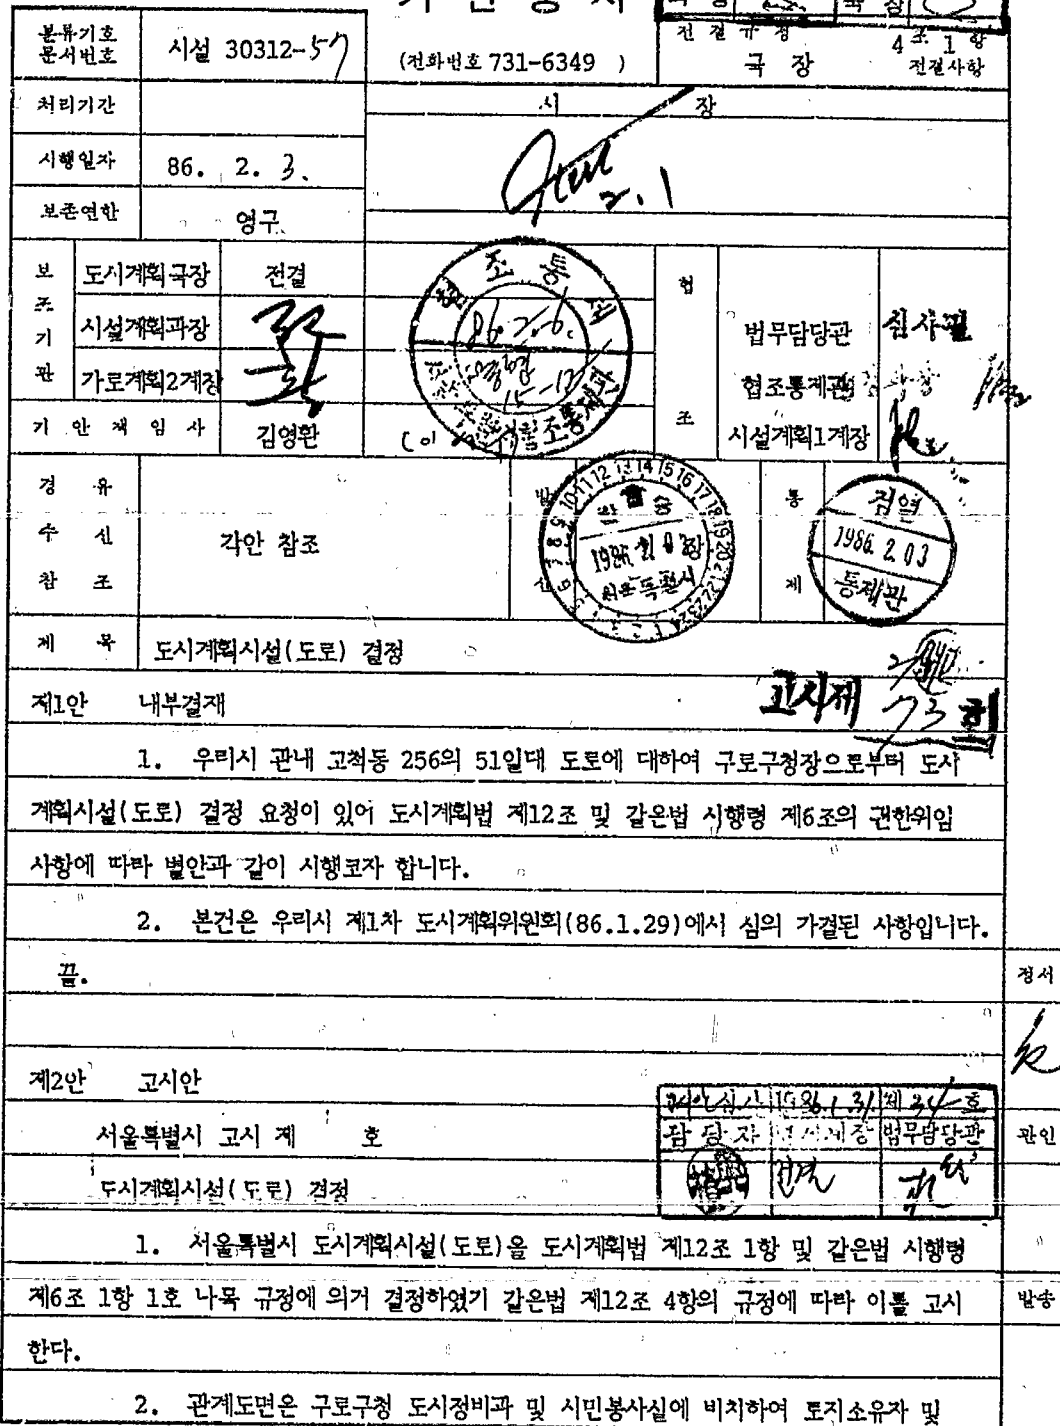 기 안 용 지
분류기호
문서번호
시설 30312-57
(전화번호 731-6349 )
전 결 규 정
4 조 1 항
국 장
전결사항
처리기간
시 장
시행일자
86. 2. 3.
2. 1
보존연한
영구
보조기관
도시계획국장
전결
시설계획과장
가로계획2계장
기 안 책 임 자
김영환
협조
법무담당관
심사필
협조통제관
시설계획1계장
협조통제
86. 2. 6.
경 유
수 신
참 조
각안 참조
발신
서울특별시장
발송
통제
검열
1986. 2. 03
통제관
제 목
도시계획시설(도로) 결정
고시제 73 호
제1안 내부결재
1. 우리시 관내 고척동 256의 51일대 도로에 대하여 구로구청장으로부터 도시
계획시설(도로) 결정 요청이 있어 도시계획법 제12조 및 같은법 시행령 제6조의 권한위임
사항에 따라 별안과 같이 시행코자 합니다.
2. 본건은 우리시 제1차 도시계획위원회(86.1.29)에서 심의 가결된 사항입니다.
끝.
정서
제2안 고시안
고시안심사 1986. 1. 31. 제 34 호
서울특별시 고시 제 호
담 당 자
법무담당관
관인
전결
도시계획시설(도로) 결정
1. 서울특별시 도시계획시설(도로)을 도시계획법 제12조 1항 및 같은법 시행령
제6조 1항 1호 나목 규정에 의거 결정하였기 같은법 제12조 4항의 규정에 따라 이를 고시
발송
한다.
2. 관계도면은 구로구청 도시정비과 및 시민봉사실에 비치하여 토지소유자 및